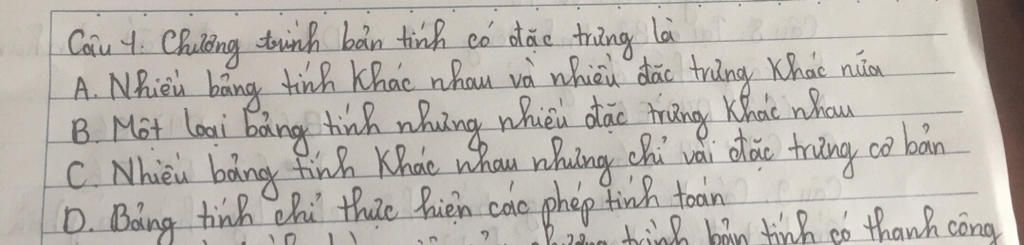 Câu 1. Chương trình bản tính có đặc trưng là
A. Nhiều bảng tính khác nhau và nhiều đặc trưng khác nữa
B. Một loại bảng tính nhưng nhiều đặc trưng khác nhau
C. Nhiều bảng tính khác nhau nhưng chỉ vài đặc trưng cơ bản
D. Bảng tính chỉ thực hiện các phép tính toán
trình bản tính có thanh công